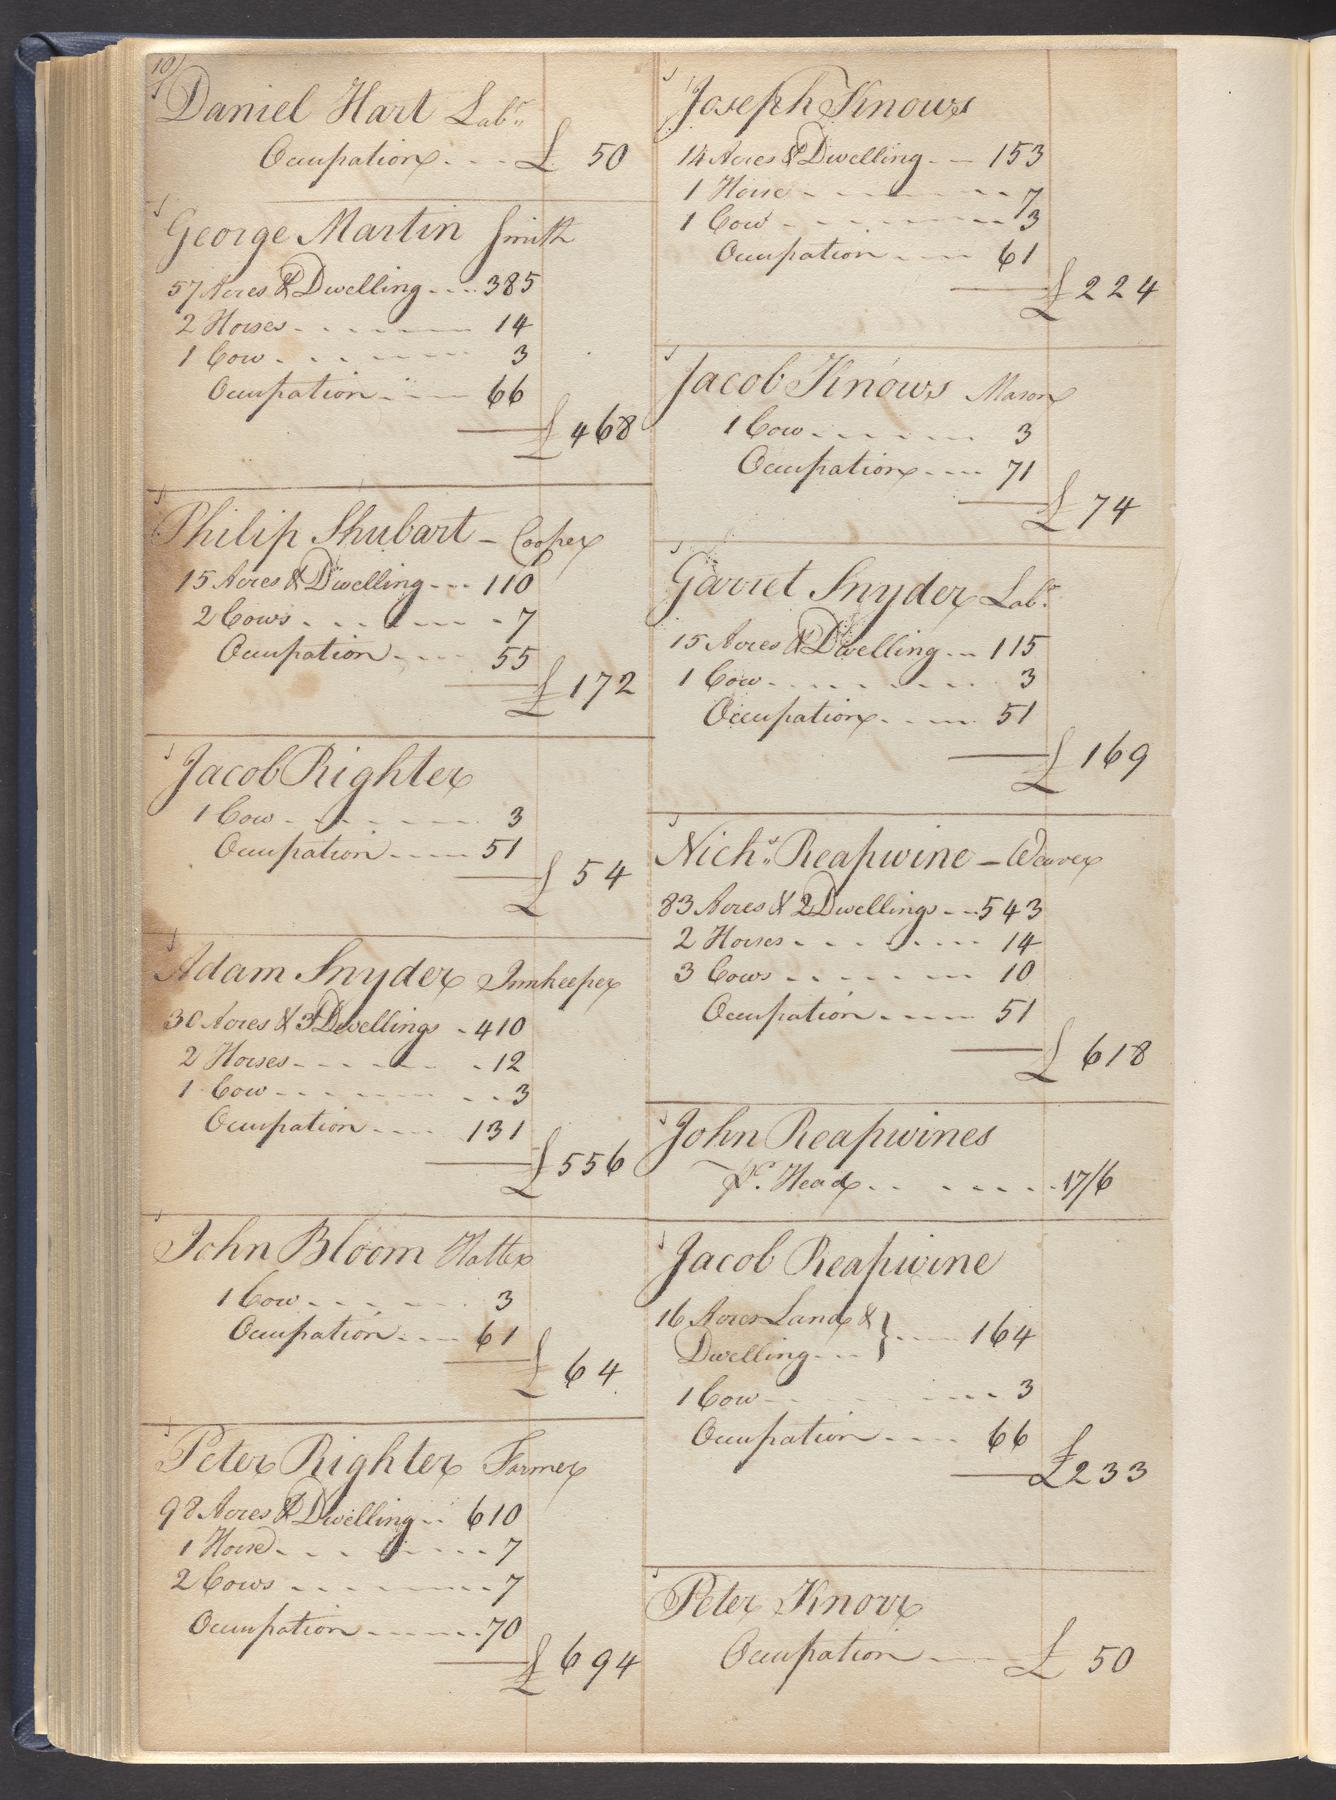 10
Daniel Hart Labr
Occupation - - - £ 50
George Martin Smith
57 Acres & Dwelling - - - 385
2 Horses - - - - - 14
1 Cow - - - - - 3
Occupation - - - 66
£ 468
Philip Shubart - Cooper
15 Acres & Dwelling - - - 110
2 Cows - - - - - 7
Occupation - - - 55
£ 172
Jacob Righter
1 Cow - - - - - 3
Occupation - - - - 51
£ 54
Adam Snyder Innkeeper
30 Acres & 3 Dwellings - 410
2 Horses - - - - - 12
1 Cow - - - - - 3
Occupation - - - - 131
£ 556
John Bloom Hatter
1 Cow - - - - - 3
Occupation - - - - 61
£ 64
Peter Righter Farmer
98 Acres & Dwelling - - 610
1 Horse - - - - - 7
2 Cows - - - - - 7
Occupation - - - - 70
£ 694
Joseph Knows
14 Acres & Dwelling - - 153
1 Horse - - - - - 7
1 Cow - - - - - 3
Occupation - - - 61
£ 224
Jacob Knows Mason
1 Cow - - - - - 3
Occupation - - - - 71
£ 74
Garret Snyder Labr
15 Acres & Dwelling - - 115
1 Cow - - - - - 3
Occupation - - - - 51
£ 169
Nichs Reapwine - Weaver
83 Acres & 2 Dwellings - - 543
2 Horses - - - - - 14
3 Cows - - - - - 10
Occupation - - - - 51
£ 618
John Reapwines
Pr. Head - - - - - 17/6
Jacob Reapwine
16 Acres Land &
Dwelling - - - } - - - 164
1 Cow - - - - - 3
Occupation - - - - 66
£ 233
Peter Knorr
Occupation - - - £ 50